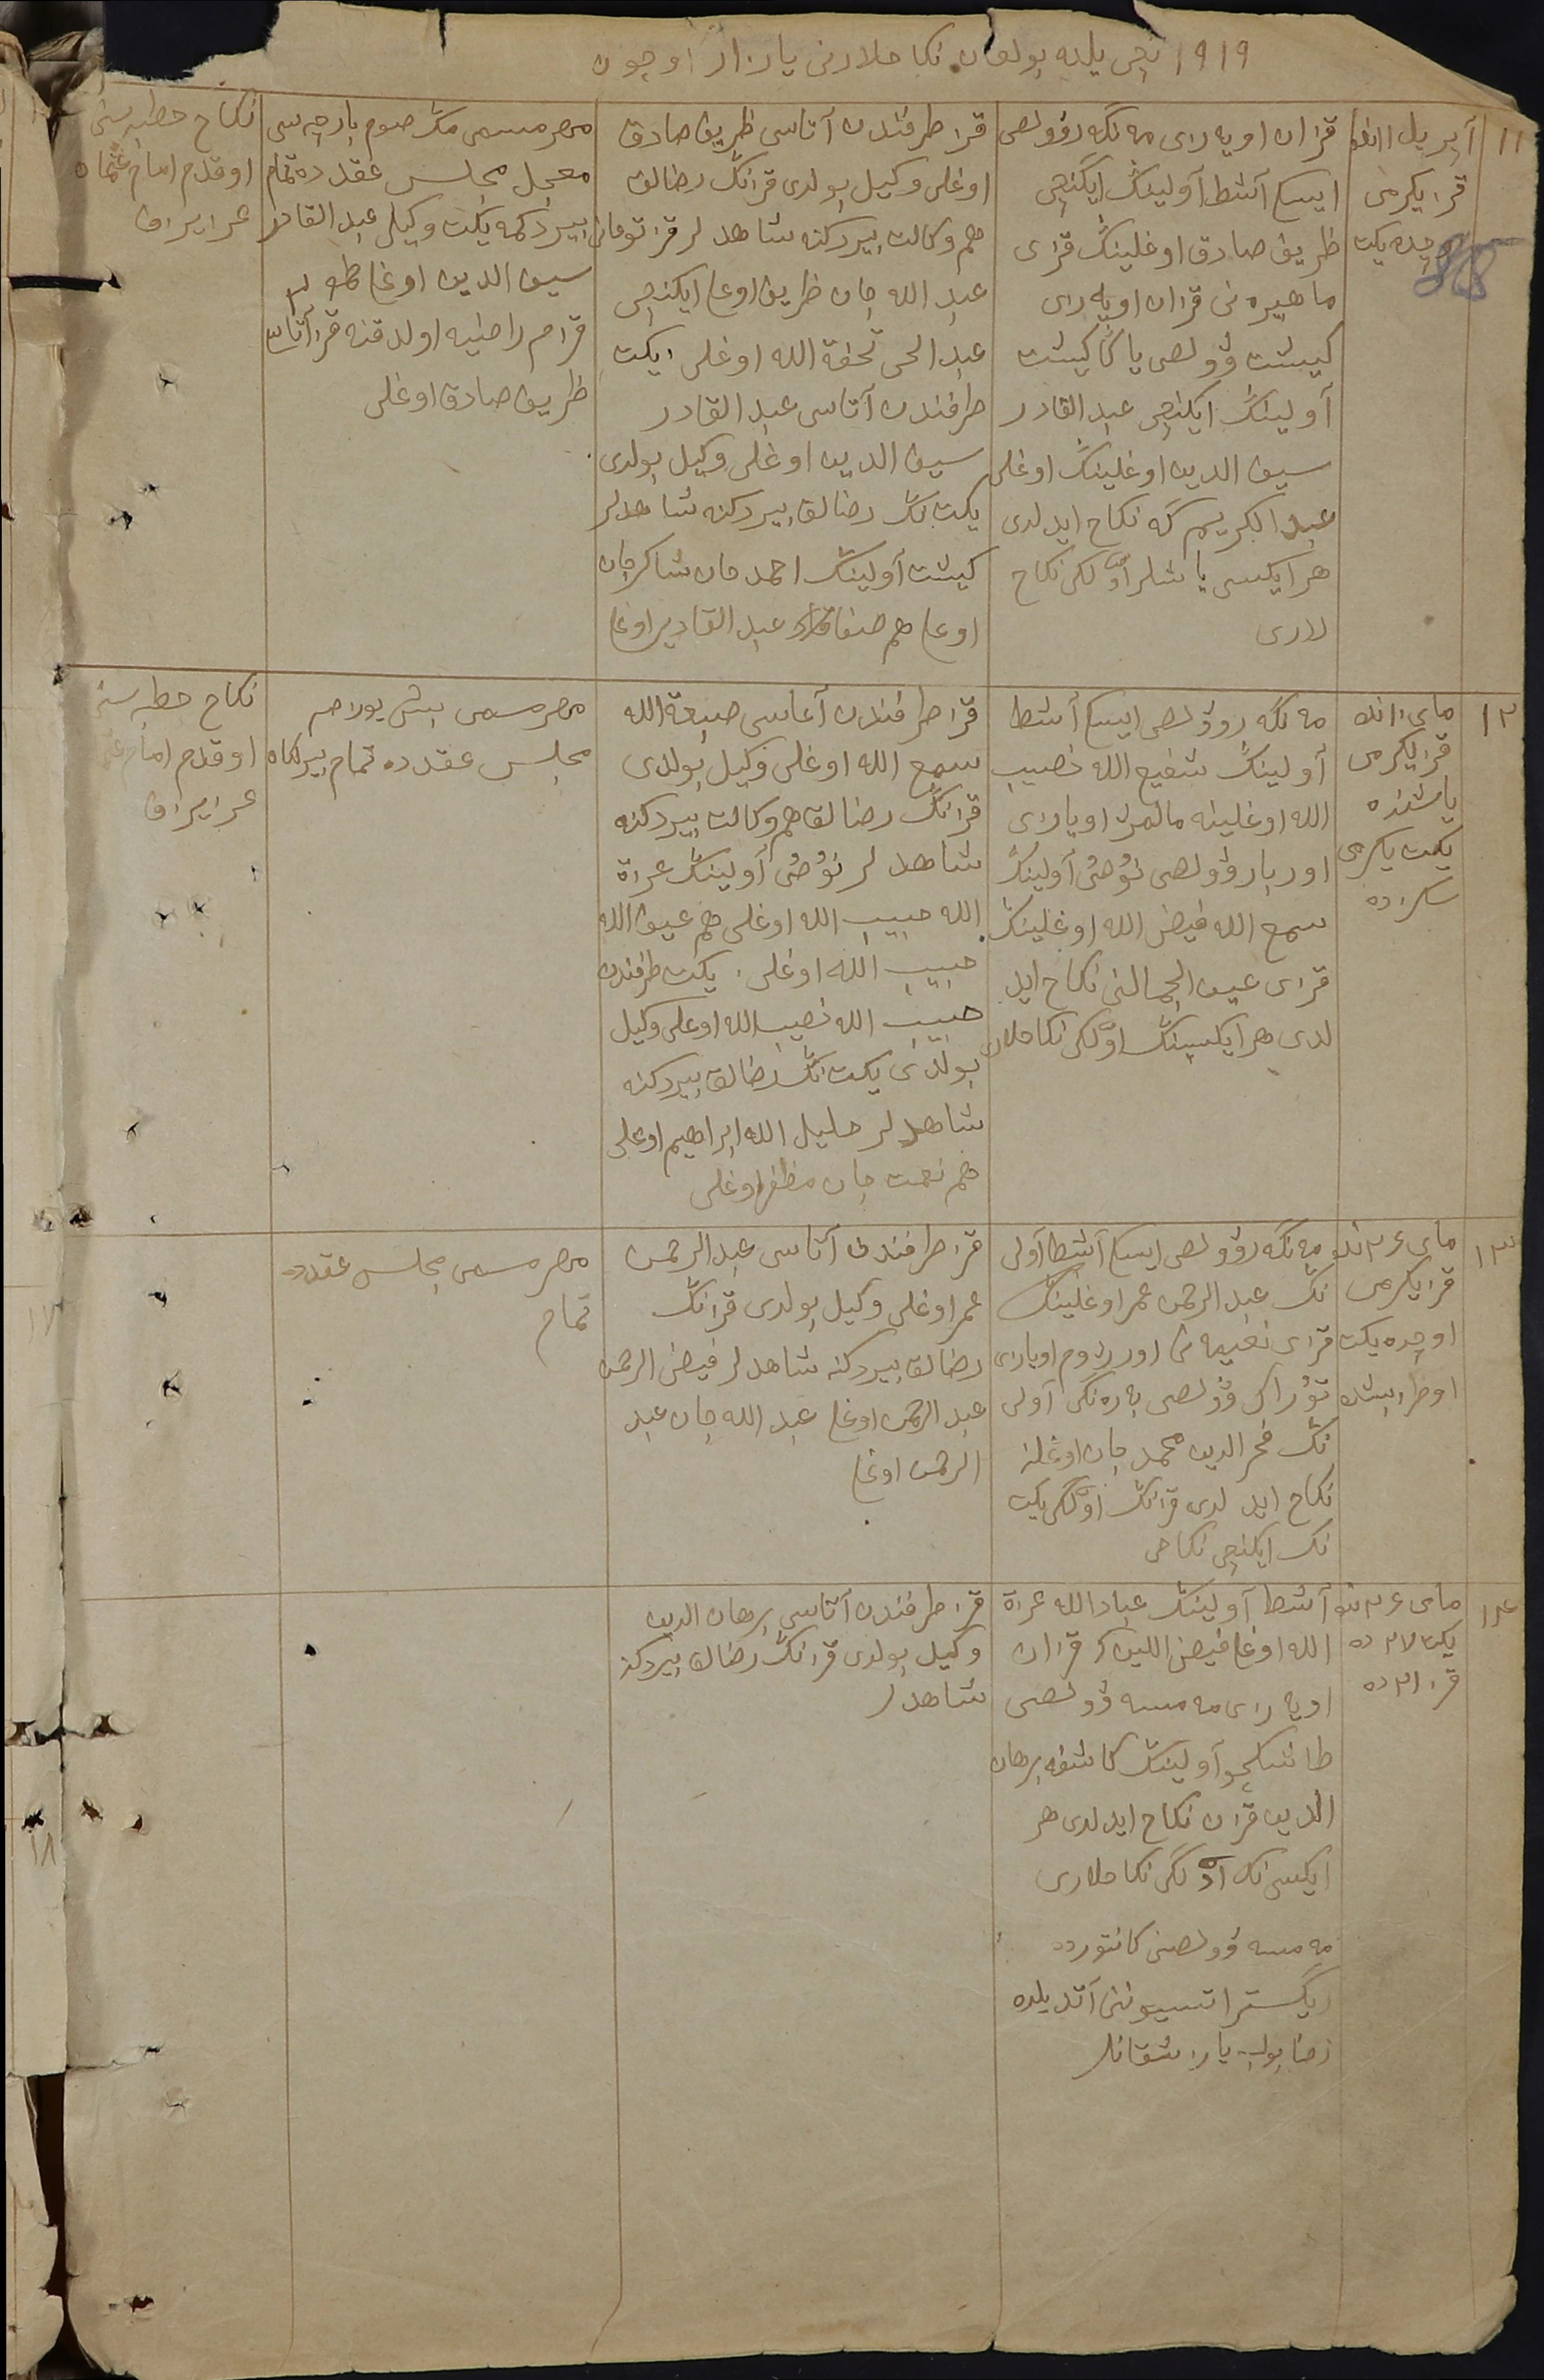 ۱۹۱۹ نچی یلده بولغان نکاحلارنی یازار اوچون
۱۱
آپریل ۱۱ نده
قز ایکرمی
اوچده یکت
قزان اویه زی مه نگه ر وولصی
ایسکی آشط آولینڭ ایکنچی
ظریف صادق اوغلینڭ قزی
ماهیره نی قزان اویه زی
کیشت وولصی یاڭا کیشت
آولینڭ ایکنچی عبد القادر
سیف الدین اوغلینڭ اوغلی
عبد الکریم گه نکاح ایدلدی
هر ایکسی یاشلر اولگی نکاح
لاری
قز طرفندن آتاسی ظریف صادق
اوغلی وکیل بولدی قزنڭ رضالق
هم وکالت بیردکنه شاهدلر قز توغانی
عبد الله جان ظریف اوغلی ایکنچی
عبد الحی تحفة الله اوغلی یکت
طرفندن آتاسی عبد القادر
سیف الدین اوغلی وکیل بولدی
یکت نڭ رضالق بیردکنه شاهدلر
کیشت آولینڭ احمد جان شاکرجان
اوغلی هم عبد القادیر اوغلی
مهر مسمی مڭ صوم بارچه سی
معجل مجلس عقد ده تمام
بیردکمه یکت وکیلی عبد القادر
سیف الدین اوغلی
قزم راضیه اولدقنه قز آتاسی
ظریف صادق اوغلی
نکاح خطبه سنی
اوقدم امام عثمان
۱۲
مای ۱۱ نده
قز ایکرمی
یاشنده
یکت یکرمی
سکز ده
مه نگه ر وولصی ایسکی آشط
آولینڭ شفیع الله نصیب
الله اوغلینه مالمژ اویازی
اوربار وولصی آولینڭ
سمیع الله فیض الله اوغلینڭ
قزی عین الجمالنی نکاح اید
لدی هر ایکسینڭ اولگی نکاحلاری
قز طرفندن آغاسی صبغة الله
سمیع الله اوغلی وکیل بولدی
قزنڭ رضالق هم وکالت بیردکنه
شاهدلر آولینڭ عزة
الله حبیب الله اوغلی هم
حبیب الله اوغلی. یکت طرفندن
حبیب الله نصیب الله اوغلی وکیل
بولدی یکت نڭ رضالق بیردکنه
شاهدلر خلیل الله ابراهیم اوغلی
هم نعمت جان مظفر اوغلی
مهر مسمی بیش یوز صم
مجلس عقد ده تمام بیرلگان
نکاح خطبه سنی
اوقدم امام
۱۳
مای ۲۶ نده
قز ایکرمی
اوچده یکت
اوطز بیشده
مه نگه ر وولصی ایسکی آشط آولی
نڭ عبد الرحمن عمر اوغلینڭ
قزی نعیمه نی اورژوم اویازی
آولی
نڭ فخر الدین محمد جان اوغلنه
نکاح ایدلدی قزنڭ اولگی یکت
نڭ ایکنچی نکاحی
قز طرفندن آتاسی عبد الرحمن
عمر اوغلی وکیل بولدی قزنڭ
رضالق بیردکنه شاهدلر فیض الرحمن
عبد الرحمن اوغلی عبد الله جان عبد
الرحمن اوغلی
مهر مسمی مجلس عقد ده
تمام
۱۴
مای ۲۶ نده
یکت ۲۷ ده
قز ۲۱ ده
آشط آولینڭ عباد الله عزة
الله اوغلی قزان
اویه زی مه مسه وولصی
طاشکچو آولینڭ کاشفه برهان
الدین قزن نکاح ایدلدی هر
ایکسی نڭ اولگی نکاحلاری
مه مسه وولصنی کانتورده
ریگستراتسیونی آتدیلده
رضا بولب یاراشقانلر
قز طرفندن آتاسی برهان الدین
وکیل بولدی قزنڭ رضالق بیردکنه
شاهدلر
۱۷
۱۸